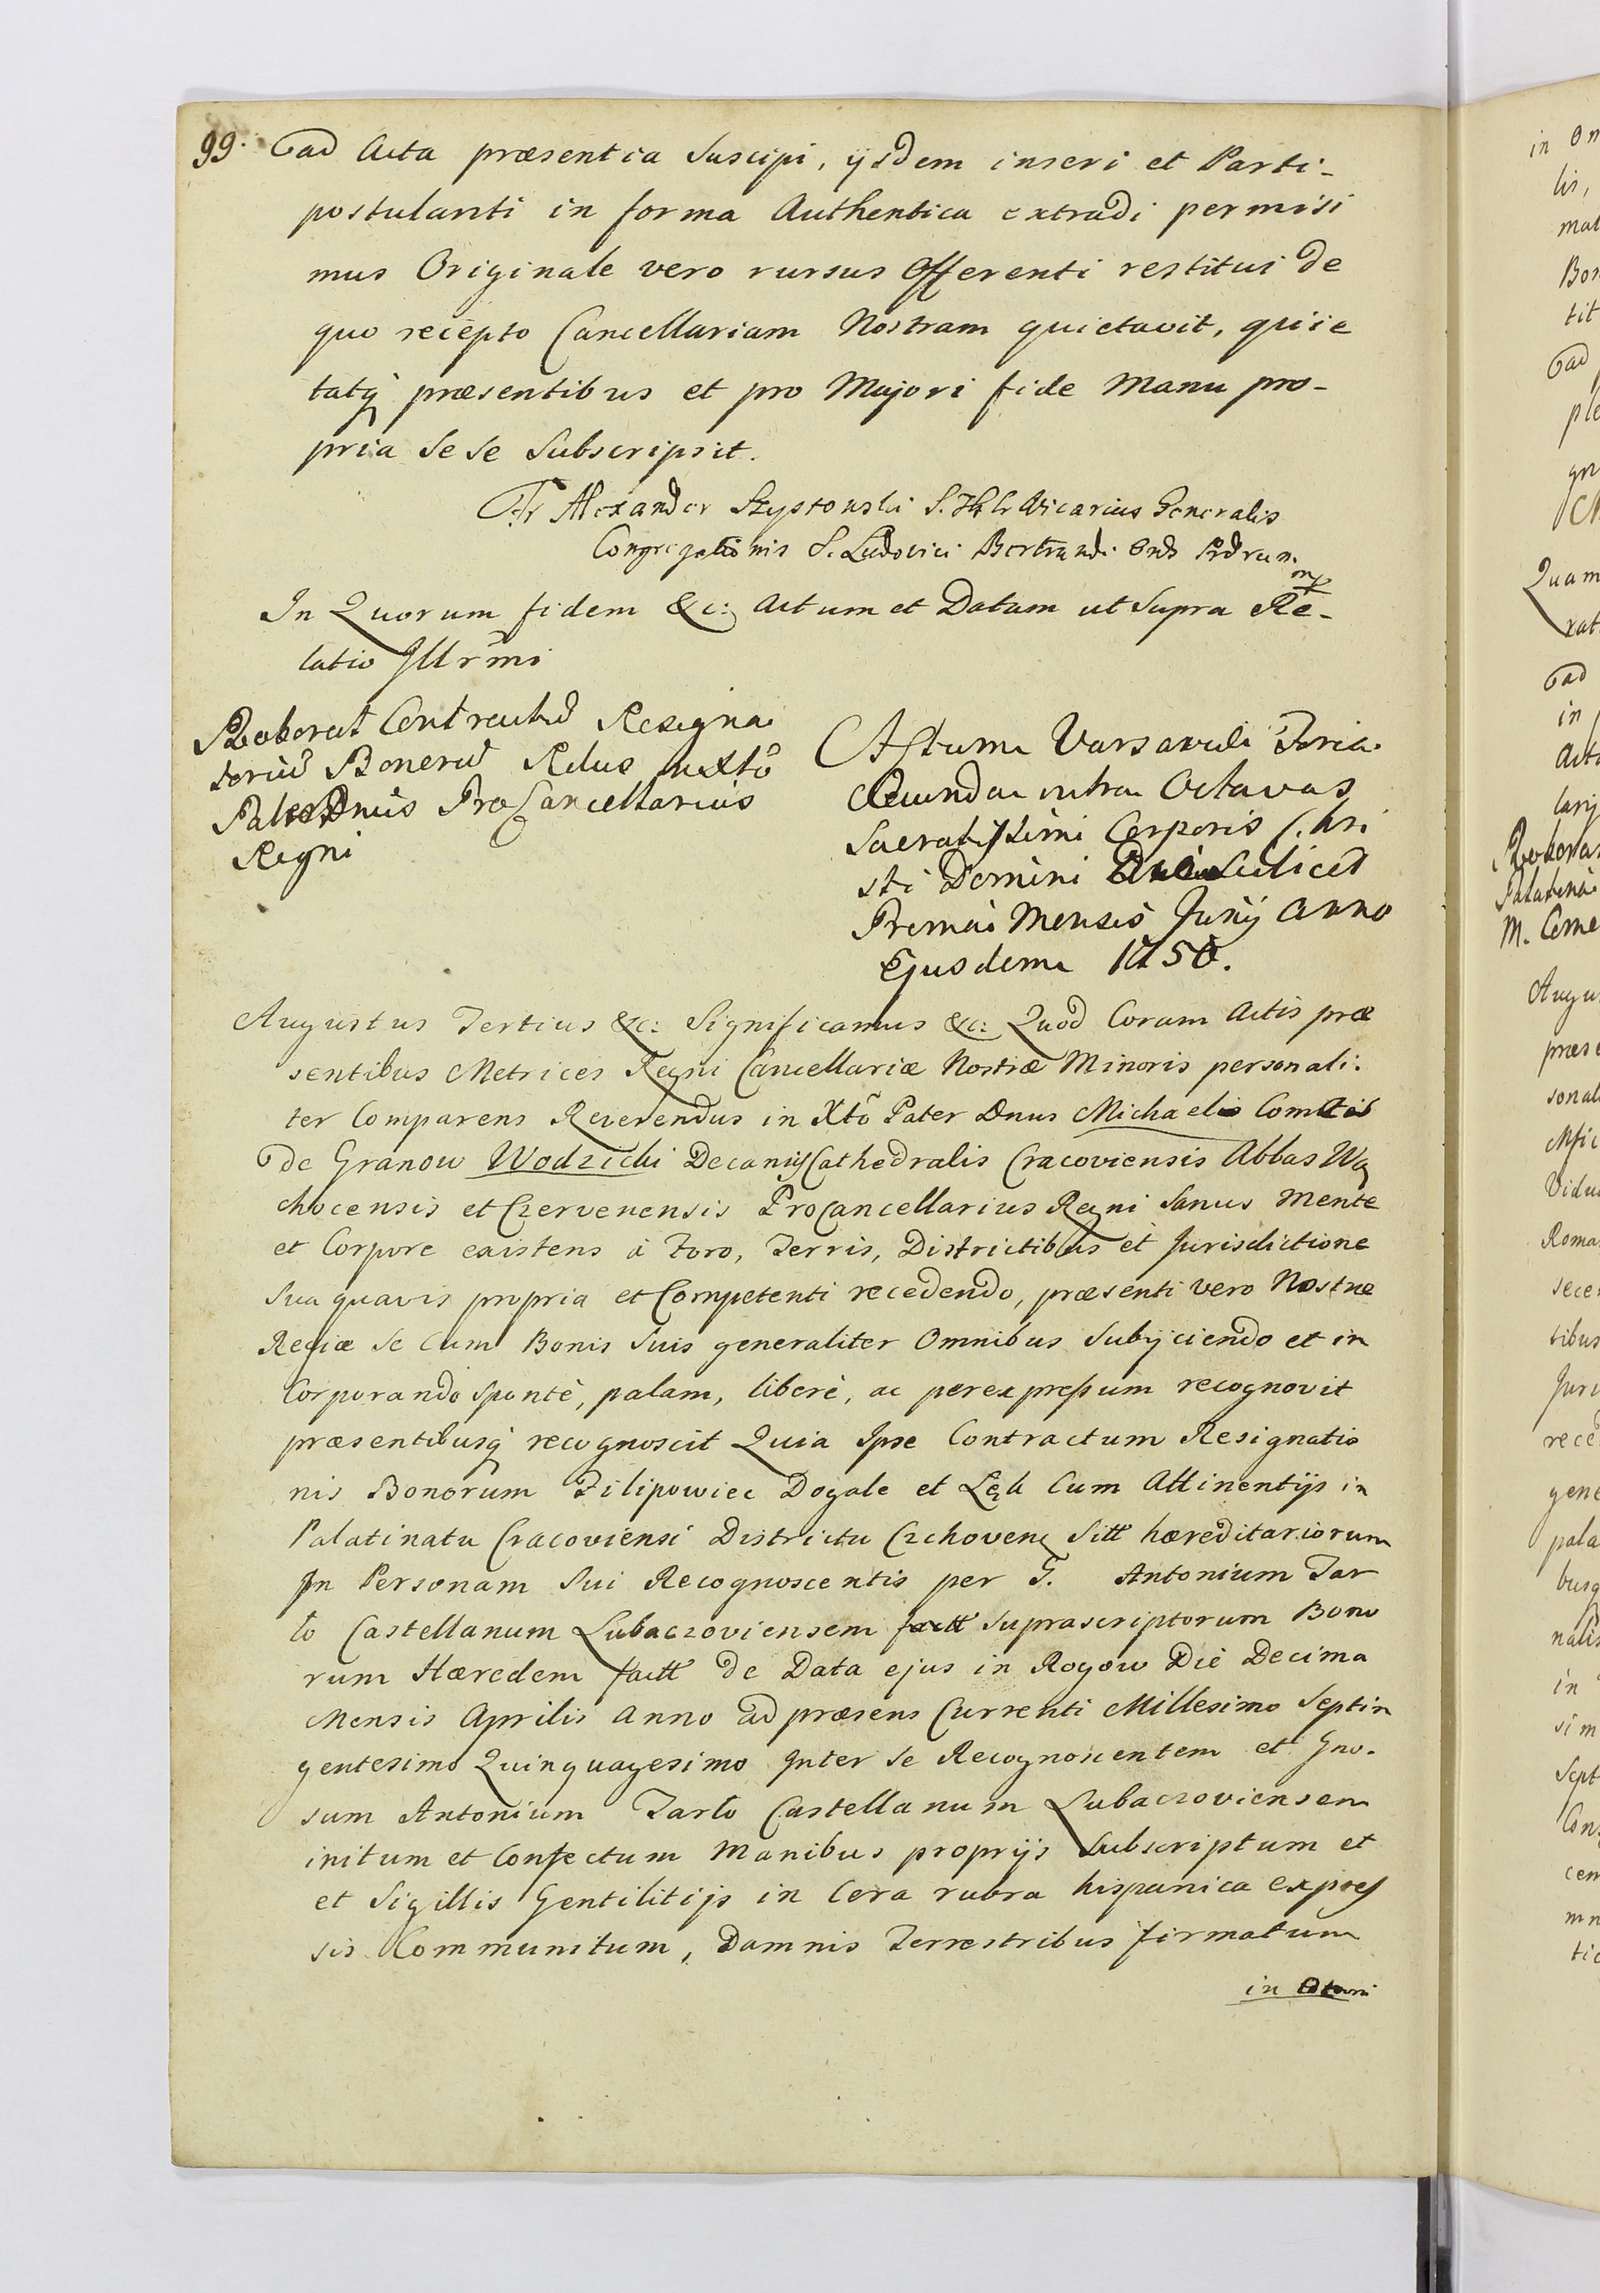 99. ad Acta præsentia Suscipi, ijsdem inseri et Parti-
postulanti in forma Authentica extradi permisi
mus Originale vero rursus Offerenti restitui de
quo recepto Cancellariam Nostram quietavit, quiie
tatq præsentibus et pro Majori fide Manu pro-
pria Se Se Subscripsit.
Fr Alexander Vicarius Generalis
Congregationis S. Ludovici Bertrandi Ord Prdrum
mp
In Quorum fidem &c: Actum et Datum ut Supra Re-
latio Illrmi
Roborat Contractus Resigna
toriu Bonoru Rdus in Xto
Pater Dnus ProCancellarius
Regni
Actum Varsaviæ Feria
Secunda intra Octavas
Sacratissimi Corporis Chri
sti Domini Scilicet
Prima Mensis Junij Anno
Ejusdem 1750.
Augustus Tertius &c: Significamus &c: Quod Coram Actis præ
sentibus Metrices Regni Cancellariæ Nostræ Minoris personali-
ter Comparens Reverendus in Xto Pater Dnus Michaelis Comitis
de Granow Wodzicki Decanus Cathedralis Cracoviensis Abbas Wą
chocensis et Czervenensis ProCancellarius Regni Sanus Mente
et Corpore existens à Foro, Terris, Districtibus et Jurisdictione
Sua quavis propria et Competenti recedendo, præsenti vero Nostræ
Regiæ Se Cum Bonis Suis generaliter Omnibus Subijciendo et in
Corporando Spontè, palam, liberè, ac per expressum recognovit
præsentibusq recognoscit Quia Ipse Contractum Resignatio
nis Bonorum Filipowiec Dogale et Cum Attinentijs in
Palatinatu Cracoviensi Districtu Czchovens Sitt hæreditariorum
In Personam Sui Recognoscentis per G. Antonium Tar
ło Castellanum Lubaczoviensem factt Suprascriptorum Bono
rum Hæredem factt de Data ejus in Rogow Die Decima
Mensis Aprilis Anno ad præsens Currenti Millesimo Septin
gentesimo Quinquagesimo Inter Se Recognoscentem et Gno-
sum Antonium Tarło Castellanum Lubaczoviensem
initum et Confectum Manibus proprijs Subscriptum et
et Sigillis Gentilitijs in Cera rubra hispanica expres
sis Communitum, Damnis Terrestribus firmatum
in